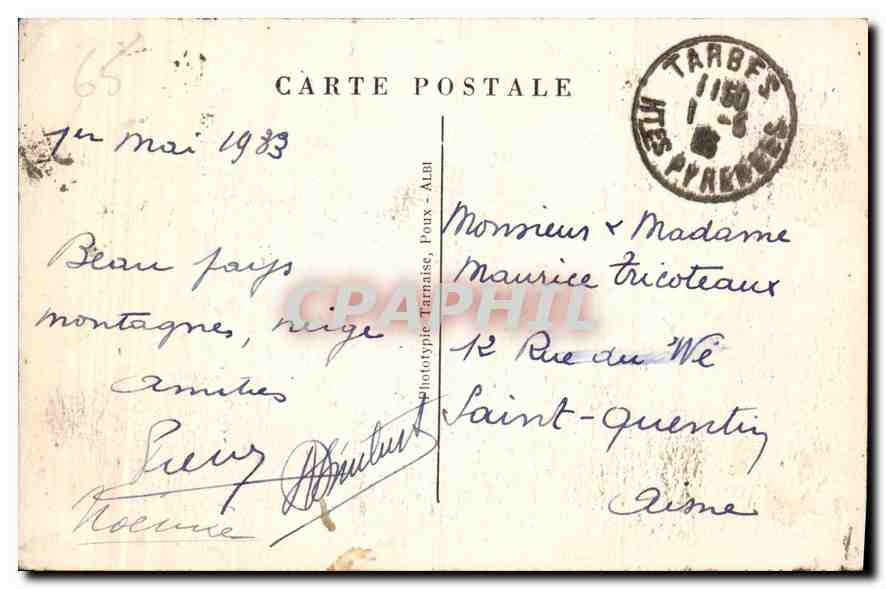 65
CARTE POSTALE
TARBES
1150
1 - 5
HTES PYRENEES
1er mai 1933
Beau pays
montagnes, neige
amitiés
Monsieur & Madame
Maurice Tricoteaux
12 Rue du Wé
Saint-Quentin
Aisne
Phototypie Tarnaise, Poux - ALBI
CPAPHIL